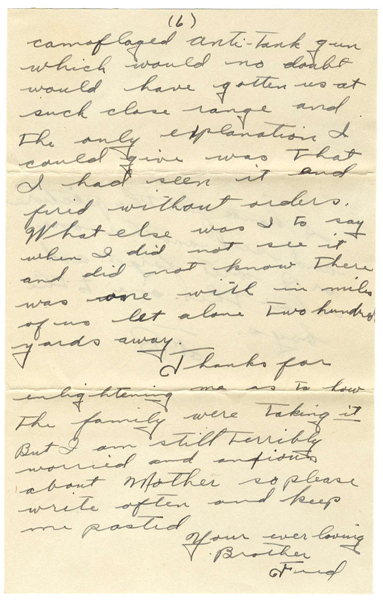 (6)
camoflaged Anti-Tank gun
which would no doubt
would have gotten us at
such close range and
the only explanation I
could give was that
I had seen it and
fired without orders.
What else was I to say
when I did not see it
and did not know there
was one with in miles
of us let alone two hundred
yards away.
Thanks for
enlightening me as to how
the family were taking it
But I am still terribly
worried and anxious
about Mother so please
write often and keep
me posted
Your ever loving
Brother